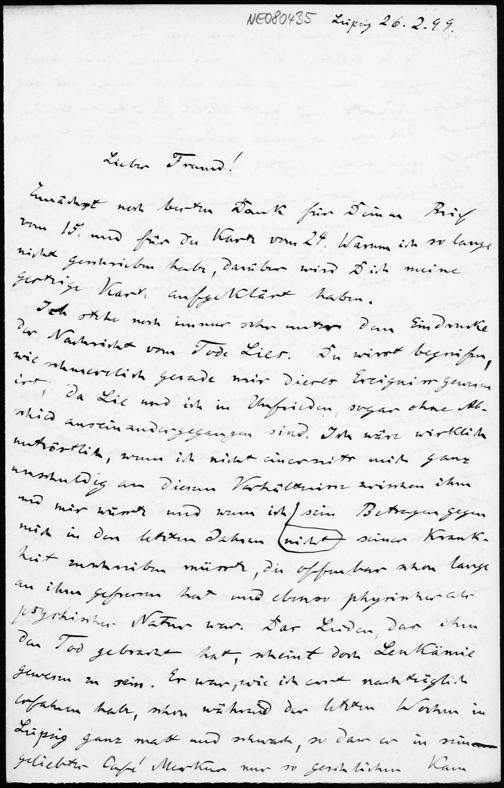 NE080435 Leipzig 26.2.99.
Lieber Freund!
Zunächst noch besten Dank für Deinen Brief
vom 15. und für die Karte vom 24. Warum ich so lange
nicht geschrieben habe, darüber wird Dich meine
gestrige Karte aufgeklärt haben.
Ich stehe noch immer sehr unter dem Eindrucke
der Nachricht vom Tode Lies. Du wirst begreifen,
wie schmerzlich gerade mir dieses Ereigniss gewesen
ist, da Lie und ich in Unfrieden, sogar ohne Ab-
schied auseinandergegangen sind. Ich wäre wirklich
untröstlich, wenn ich nicht einerseits mich ganz
unschuldig an diesem Verhältnisse zwischen ihm
und mir wüsste und wenn ich sein Betragen gegen
mich in den letzten Jahren nicht seiner Krank-
heit zuschreiben müsste, die offenbar schon lange
an ihm gefressen hat und ebenso physischer als
psychischer Natur war. Das Leiden, das ihm
den Tod gebracht hat, scheint doch Leukämie
gewesen zu sein. Er war, wie ich erst nachträglich
erfahren habe, schon während der letzten Wochen in
Leipzig ganz matt und schwach, so dass er in sein
geliebtes Café Merkur nur so geschlichen kam